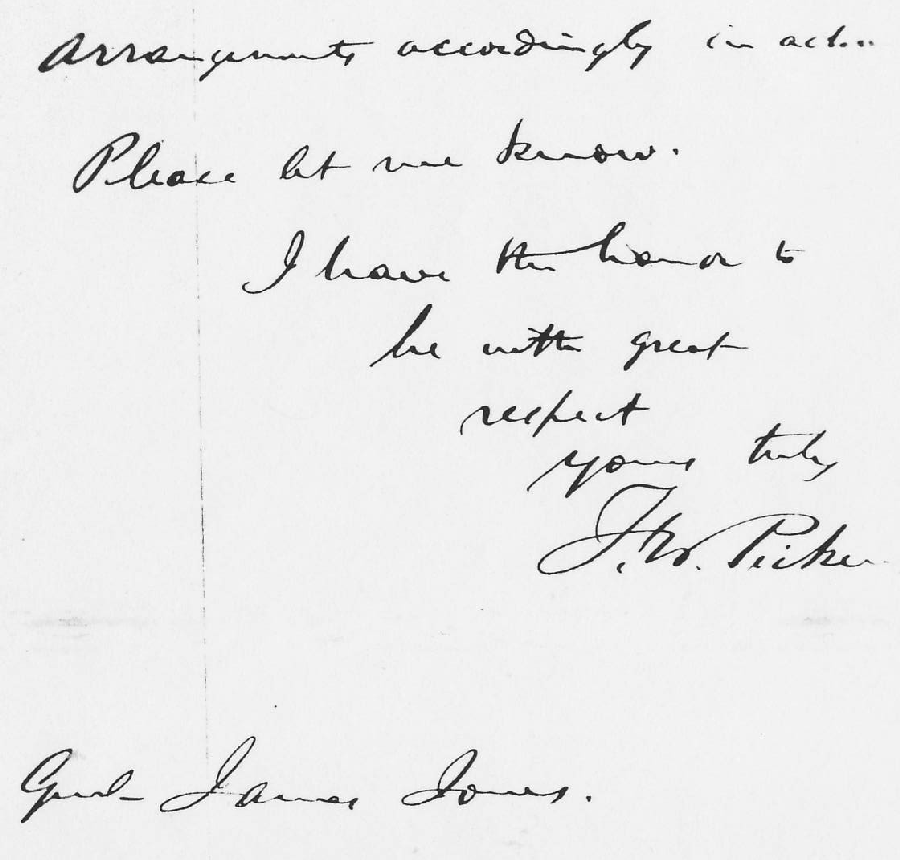 Arrangements accordingly in
Please let me know.
I have the honor to
be with great
respect
yours truly
F. W. Picke
Genl James Jones.